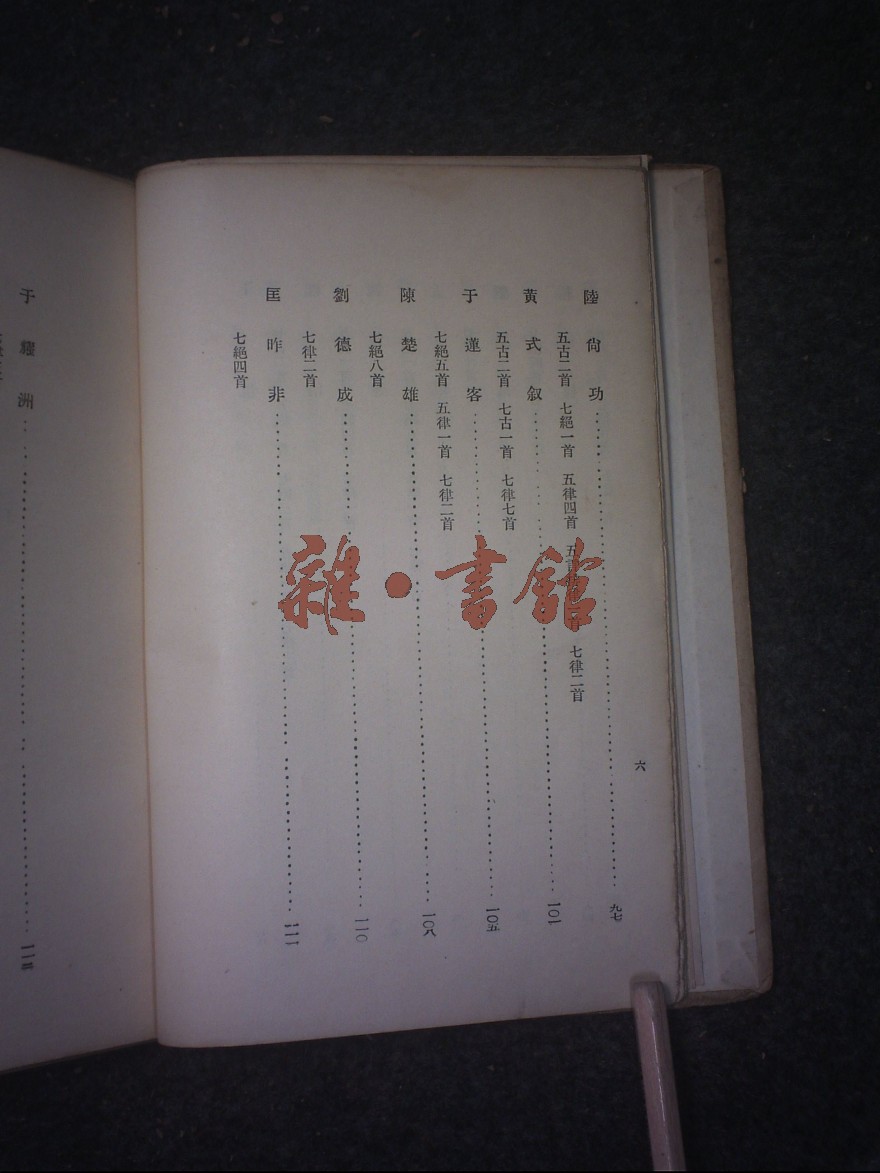 六
陸尙功 九七
五古二首 七絕一首 五律四首 五 首 七律二首
黃式叙 一〇一
五古二首 七古一首 七律七首
于蓮客 一〇五
七絕五首 五律一首 七律二首
陳楚雄 一〇八
七絕八首
劉德成 一一〇
七律二首
匡昨非 一一一
七絕四首
于耀洲
雜·書館